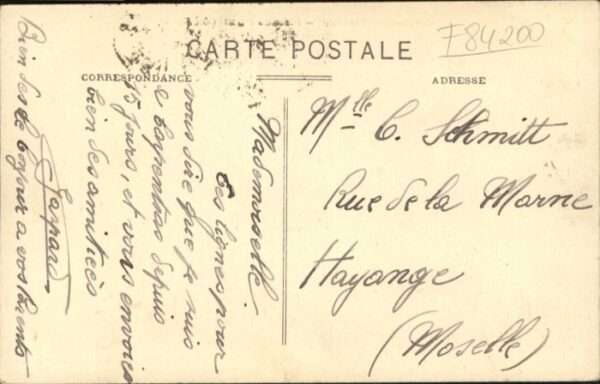 CARTE POSTALE
F84200
CORRESPONDANCE
ADRESSE
Mademoiselle
Ces lignes pour
vous dire que je suis
a Carpentras depuis
15 jours, et vous envoie
bien des amitiées
Gaspard
Bien des le bonjour a vos parents
Mlle C. Schmitt
Rue de la Marne
Hayange
(Moselle)